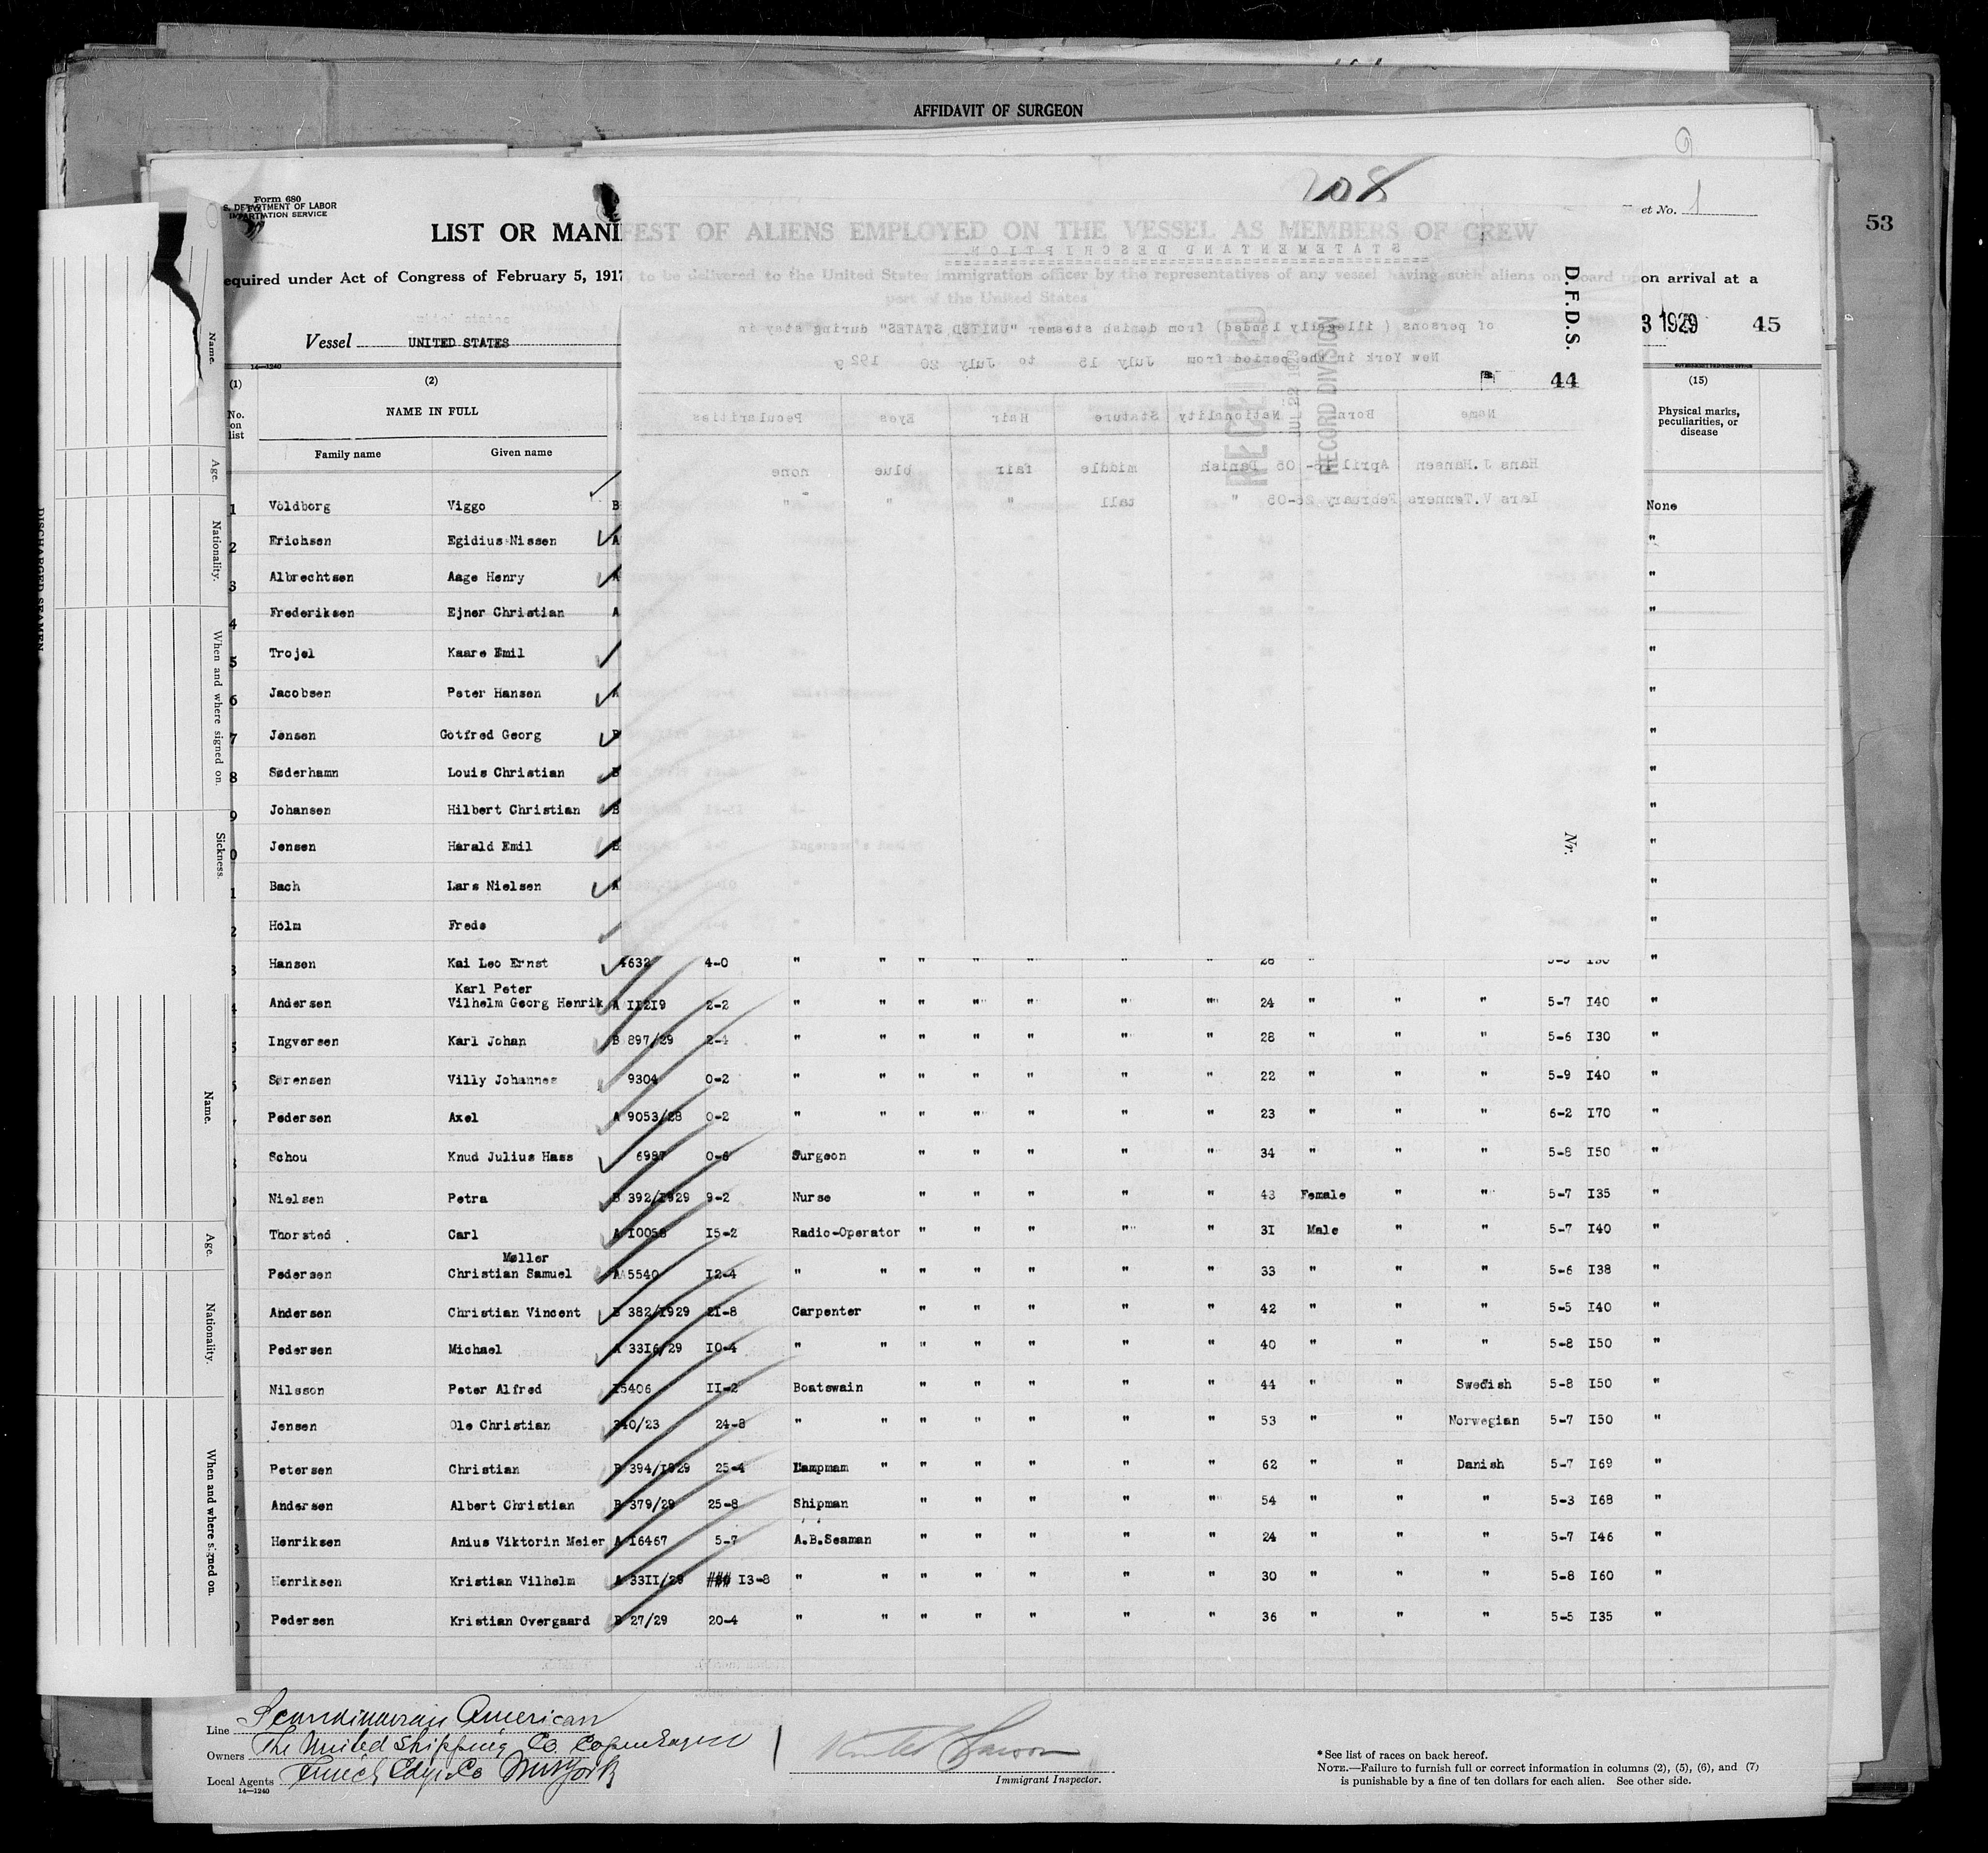 AFFIDAVIT OF SURGEON
53
208
Form 680
S. DEPARTMENT OF LABOR
IMMIGRATION SERVICE
et No. 1
LIST OR MANIFEST OF ALIENS EMPLOYED ON THE VESSEL AS MEMBERS OF CREW
equired under Act of Congress of February 5, 1917, to be delivered to the United States immigration officer by the representatives of any vessel having such aliens on board upon arrival at a
port of the United States
Vessel UNITED STATES
3 1929 45
D.F.D.S.
44
Nr.
STATEMENT AND DESCRIPTION
of persons (illegerly landed) from danish steamer "UNITED STATES" during stay in
New York in the period from July 15 to July 20 1929
Name Born Nationality Stature Hair Eyes Pecularities
Hans J. Hansen April 15-05 Danish middle fair blue none
Lars V. Tønners February 26-05 " tall " " "
RECEIVED
JUL 22 1929
RECORD DIVISION
14—1240
(1) (2) (15)
No. on list
NAME IN FULL
Family name Given name
Physical marks, peculiarities, or disease
1 Voldborg Viggo B None
2 Erichsen Egidius Nissen A "
3 Albrechtsen Aage Henry A "
4 Frederiksen Ejner Christian A "
5 Trojel Kaare Emil "
6 Jacobsen Peter Hansen A "
7 Jensen Gotfred Georg B "
8 Søderhamn Louis Christian B "
9 Johansen Hilbert Christian B "
0 Jensen Harald Emil B "
1 Bach Lars Nielsen A "
2 Holm Frede "
3 Hansen Kai Leo Ernst 4632 4-0 " " " " " " " 26 " "
Karl Peter
4 Andersen Vilhelm Georg Henrik A II2I9 2-2 " " " " " " " 24 " " " 5-7 I40 "
5 Ingversen Karl Johan B 897/29 2-4 " " " " " " " 28 " " " 5-6 I30 "
Sørensen Villy Johannes 9304 0-2 " " " " " " " 22 " " " 5-9 I40 "
Pedersen Axel A 9053/28 0-2 " " " " " " " 23 " " " 6-2 I70 "
Schou Knud Julius Hass 6987 0-6 Surgeon " " " " " 34 " " " 5-8 I50 "
Nielsen Petra B 392/I929 9-2 Nurse " " " " " 43 Female " " 5-7 I35 "
Thorsted Carl A I0058 I5-2 Radio-Operator " " " " " 3I Male " " 5-7 I40 "
Møller
Pedersen Christian Samuel A 5540 I2-4 " " " " " " " 33 " " " 5-6 I38 "
Andersen Christian Vincent B 382/I929 2I-8 Carpenter " " " " " 42 " " " 5-5 I40 "
Pedersen Michael A 33I6/29 I0-4 " " " " " " " 40 " " " 5-8 I50 "
Nilsson Peter Alfred I5406 II-2 Boatswain " " " " " 44 " " Swedish 5-8 I50 "
Jensen Ole Christian 340/23 24-8 " " " " " " " 53 " " Norwegian 5-7 I50 "
Petersen Christian B 394/I929 25-4 Lampmam " " " " " " 62 " " Danish 5-7 I69 "
Andersen Albert Christian B 379/29 25-8 Shipman " " " " " 54 " " " 5-3 I68 "
Henriksen Anius Viktorin Meier A I6467 5-7 A.B.Seaman " " " " " 24 " " " 5-7 I46 "
Henriksen Kristian Vilhelm A 33II/29 ### I3-8 " " " " " " " 30 " " " 5-8 I60 "
Pedersen Kristian Overgaard B 27/29 20-4 " " " " " " " 36 " " " 5-5 I35 "
Line Scandinavian American
Owners The United Shipping Co. Copenhagen
Local Agents Funch Edye Co New York
14—1240
Immigrant Inspector.
*See list of races on back hereof.
NOTE.—Failure to furnish full or correct information in columns (2), (5), (6), and (7)
is punishable by a fine of ten dollars for each alien. See other side.
DISCHARGED SEAMEN
Name.
Age.
Nationality.
When and where signed on.
Sickness.
Name.
Age.
Nationality.
When and where signed on.